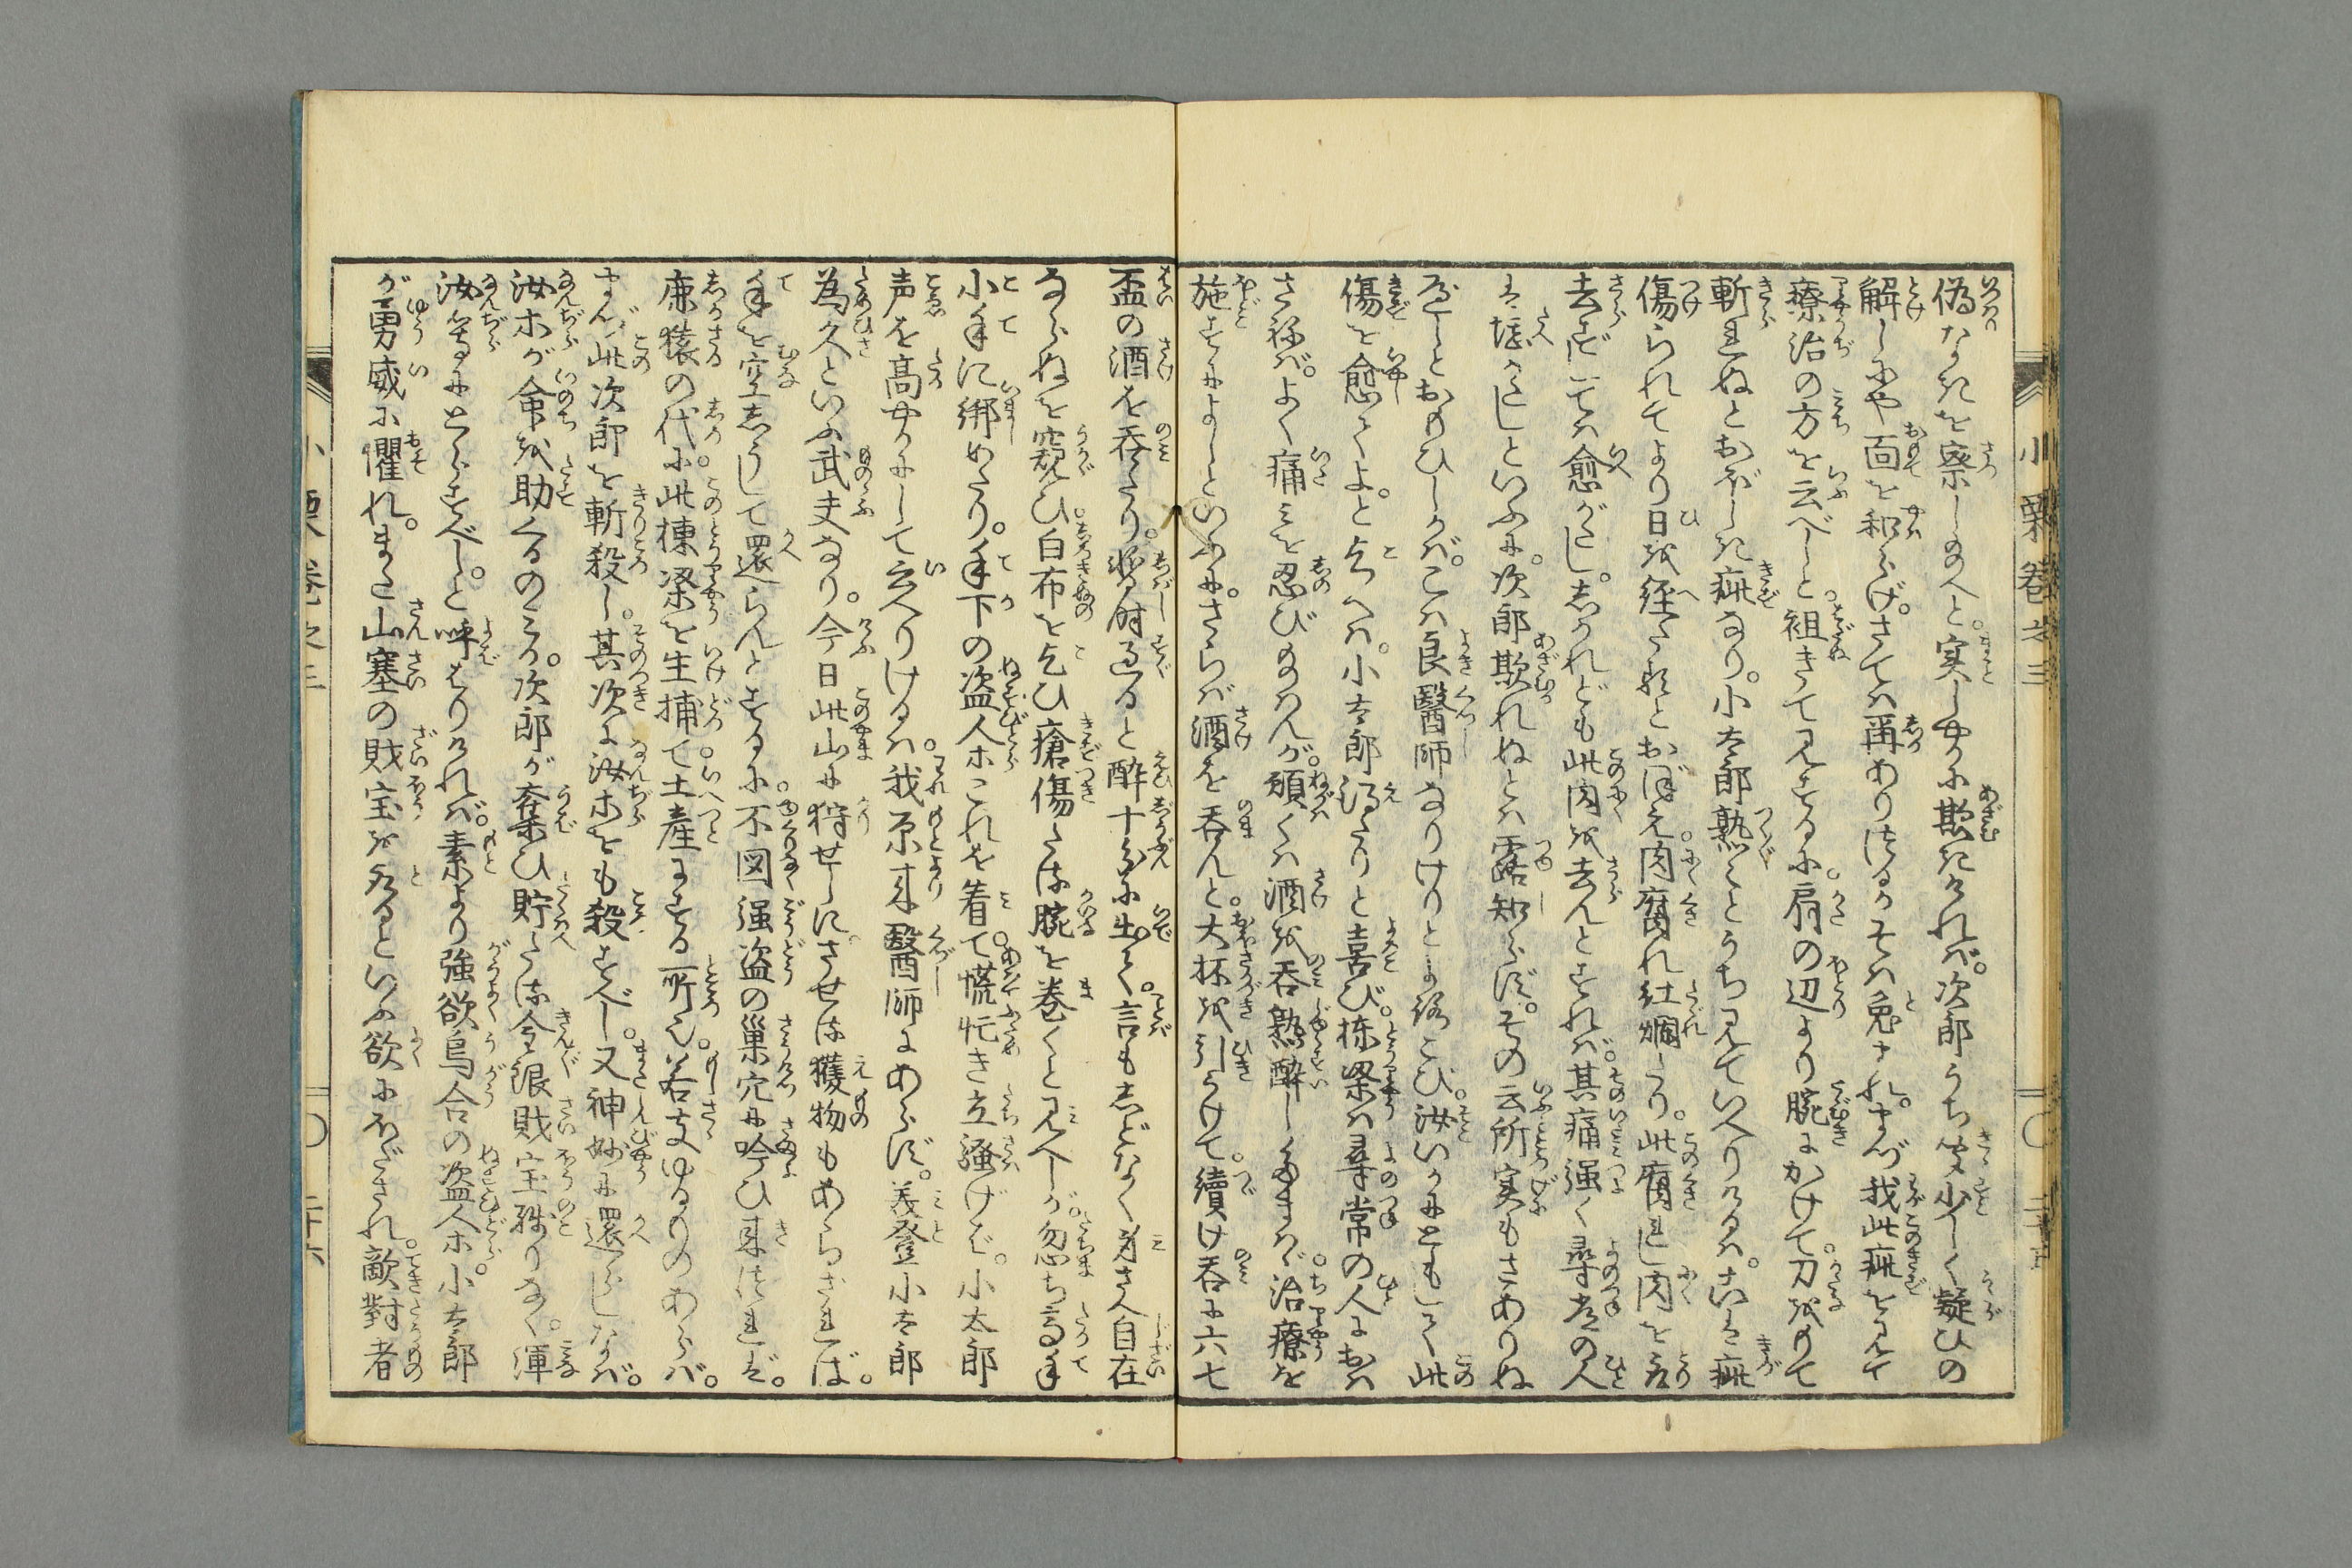 偽なきを察し給へと。実しやかに欺きければ。次郎うち笑少しく疑ひの
解しにや面を和らげ。さては再ありつるかそは兎まれ。まづ我此疵を見て
療治の方を云べしと。袒きて見するに。肩の辺より腕にかけて。刀をもて
斬れぬとおぼしき疵なり。小太郎熟々とうち見ていへりけるは。こは疵
傷られてより日を経たりとおぼえ。肉腐れ牡爛たり。此腐れし肉を
去ずしては愈がたし。しかれども此肉を去んとすれば。其痛強く尋常の人
は堪がたしといふに。次郎欺れぬとは露知らず。その云所実もさありぬ
べしとおもひしかば。こは良醫師なりけりとよろこび。汝いかにともして此
傷を愈てよ。と乞へば。小太郎得たりと喜び。棟梁は尋常の人におは
さねば。よく痛みを忍び給はんが。願くは酒を呑熟酔し給はゞ。治療を
施すによしといふに。さらば酒を呑んと。大杯を引うけて。續け呑に六七
盃の酒を呑たり。暫時過ると酔十分に出て。言もしどなく身さへ自在
ならぬを窺ひ。白布を乞ひ瘡傷たる腕を巻くと見へしが。忽ち高手
小手に綁めたり。手下の盗人ホこれを着て。慌忙き立騒げど。小太郎
声を高やかにして云へりけるは。我原来醫師にあらず。美登小太郎
為久といふ武夫なり。今日此山に狩せしに。させる獲物もあらざれば。
手を空しうして還らんとするに。不図强盗の巣穴に吟ひ来つれど。
鹿猿の代に。此棟梁を生捕て土産にする所也。若支ゆるものあらば。
まづ此次郎を斬殺し。其次に汝ホをも殺すべし。又神妙に還しなば。
汝ホが命を助くるのみか。次郎が奪ひ貯たる金銀財宝残りなく。渾
汝等にとらすべし。と呼はりければ。素より強欲烏合の盗人ホ。小太郎
が勇威に懼れ。また山塞の財宝を得るといふ欲にほだされ。敵對者
小栗巻之三 二十五
小栗巻之三 二十六